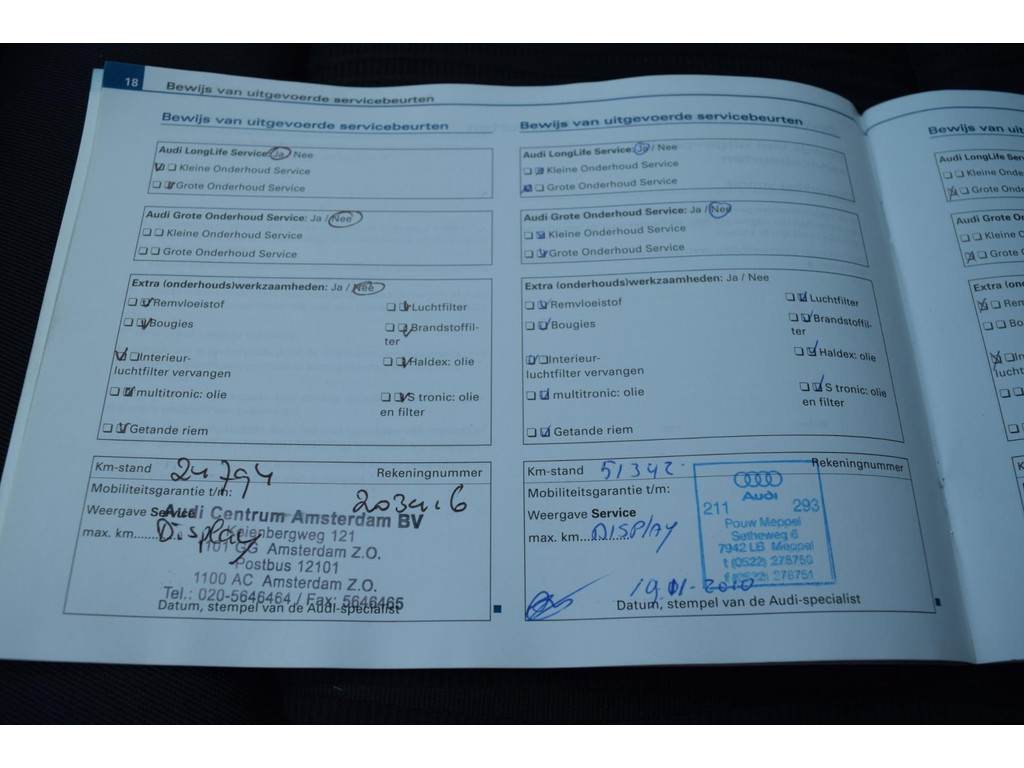 18 Bewijs van uitgevoerde servicebeurten
Bewijs van uitgevoerde servicebeurten
Audi LongLife Service: Ja / Nee
Kleine Onderhoud Service
Grote Onderhoud Service
Audi Grote Onderhoud Service: Ja / Nee
Kleine Onderhoud Service
Grote Onderhoud Service
Extra (onderhouds)werkzaamheden: Ja / Nee
Remvloeistof
Luchtfilter
Bougies
Brandstoffil-
ter
Interieur-
luchtfilter vervangen
Haldex: olie
multitronic: olie
S tronic: olie
en filter
Getande riem
Km-stand 24794 Rekeningnummer
Mobiliteitsgarantie t/m:
Weergave Service
max. km........ Display
Audi Centrum Amsterdam BV
Keienbergweg 121
1101 GG Amsterdam Z.O.
Postbus 12101
1100 AC Amsterdam Z.O.
Tel.: 020-5646464 / Fax: 5646465
Datum, stempel van de Audi-specialist
Bewijs van uitgevoerde servicebeurten
Audi LongLife Service: Ja / Nee
Kleine Onderhoud Service
Grote Onderhoud Service
Audi Grote Onderhoud Service: Ja / Nee
Kleine Onderhoud Service
Grote Onderhoud Service
Extra (onderhouds)werkzaamheden: Ja / Nee
Remvloeistof
Luchtfilter
Bougies
Brandstoffil-
ter
Interieur-
luchtfilter vervangen
Haldex: olie
multitronic: olie
S tronic: olie
en filter
Getande riem
Km-stand 51342 Rekeningnummer
Mobiliteitsgarantie t/m:
Weergave Service
max. km........ DISPLAY
Audi
211 293
Pouw Meppel
Setheweg 6
7942 LB Meppel
t (0522) 278750
f (0522) 278751
19-01-2010
Datum, stempel van de Audi-specialist
Bewijs van uit
Audi LongLife Serv
Kleine Onde
Grote Onde
Audi Grote On
Kleine O
Grote O
Extra (onde
Rem
Bo
In
lucht